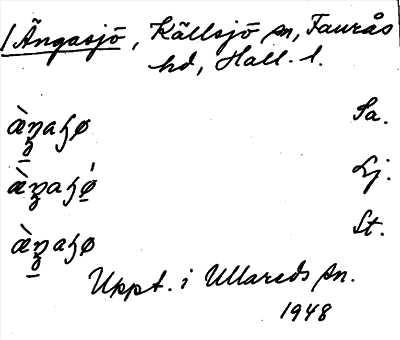 / Ängasjö, Källsjö sn, Faurås
hd, Hall. l.
æ̀ŋaʃø Sa.
æ̀ŋaʃǿ Lj.
æ̀ŋaʃø St.
Uppt. i Ullareds sn.
1948